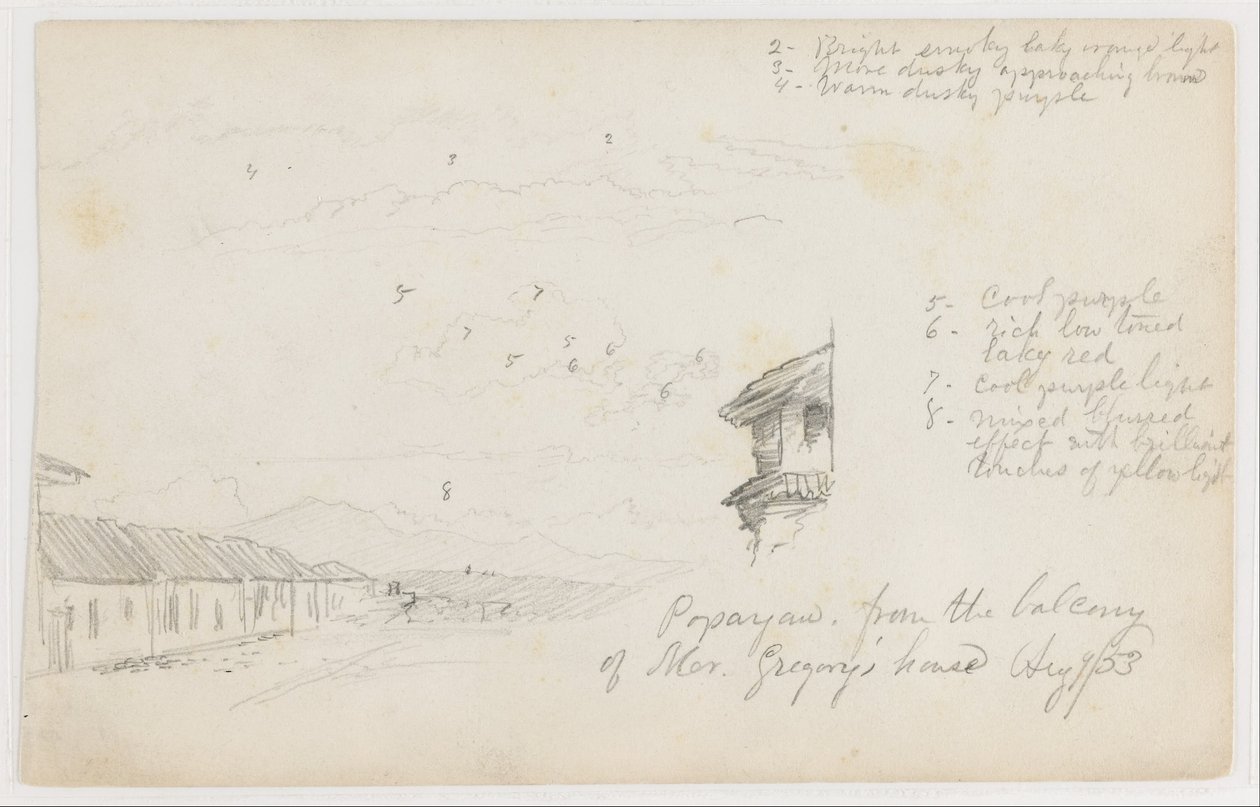 2- Bright smoky laky orange light
3- More dusky approaching brown
4- Warm dusky purple
4 3 2
5 7
7 5 6 6
5 6 6
8
5- Cool purple
6- rich low toned
laky red
7- cool purple light
8- mixed blurred
effect with brilliant
touches of yellow light
Popayan. from the balcony
of Mr. Gregory's house Aug 9/53